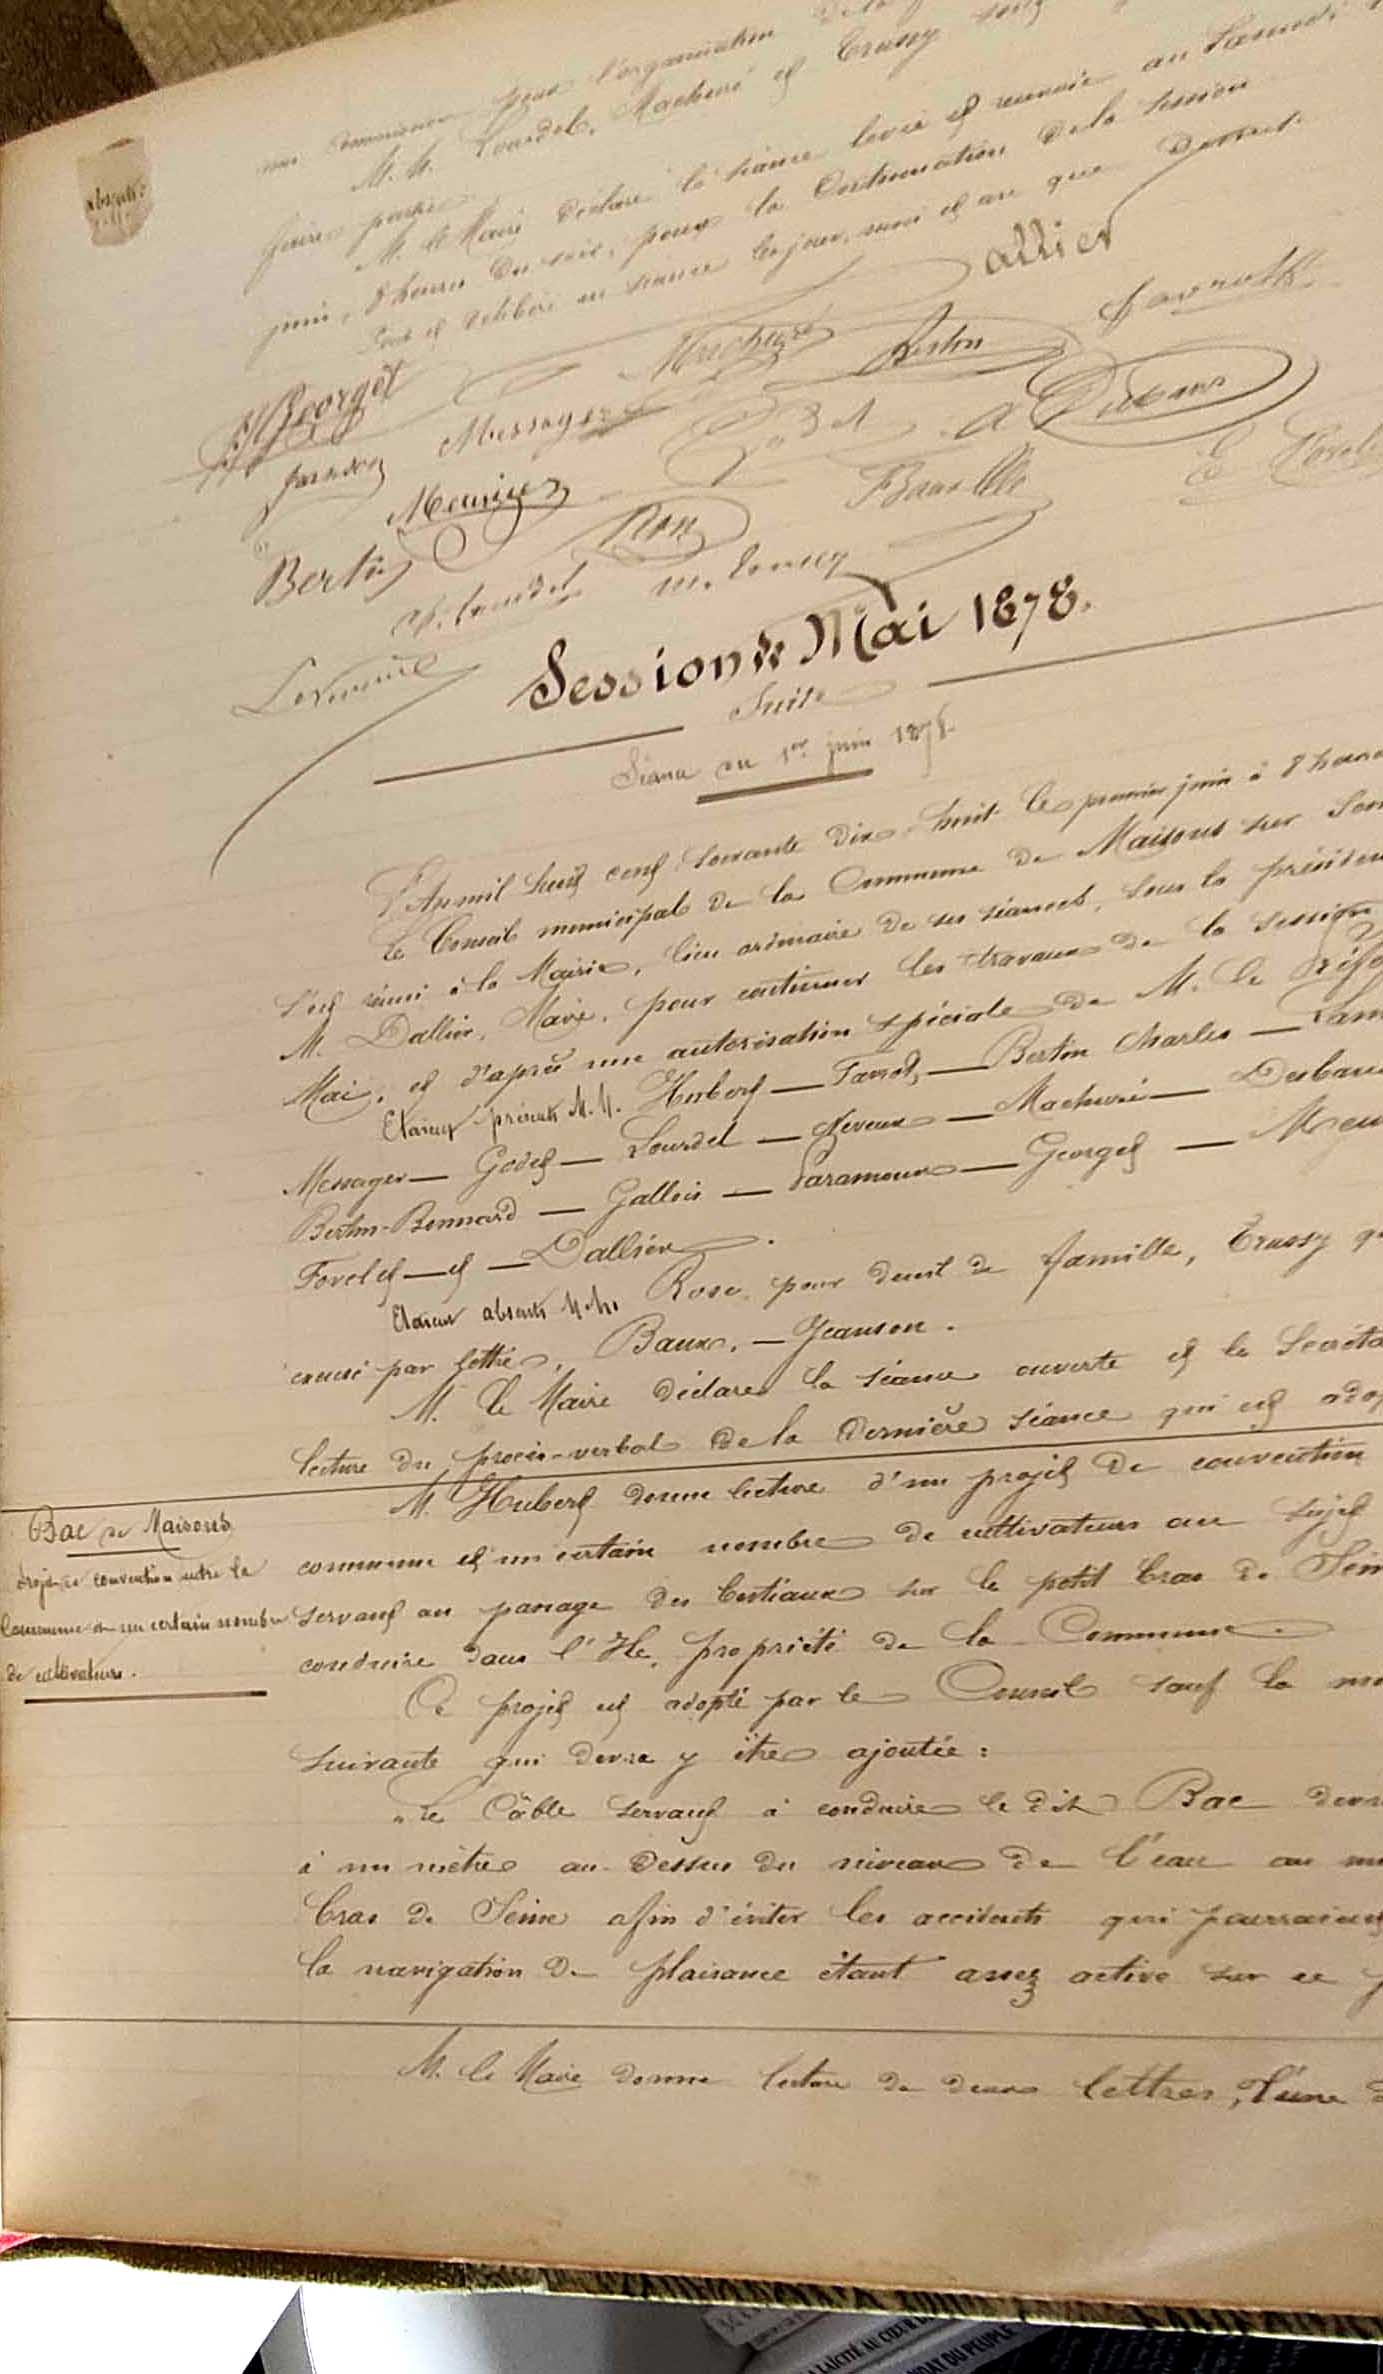 une Commission pour l'organisation de la
faire partie M. M. Lourdel, Machuré et Trussy
M. le Maire déclare la séance levée et renvoie au Samedi
juin, 8 heures du soir, pour la Continuation de la session
Fait et délibéré en séance les jour, mois et an que dessus.
absents :
allier
Georget
Messager
Machuré
Berton
Favrot
Jeanson
Meunier
Godet
Bertin
Roze
Ch. Lourdel
m. Trussy
Session de Mai 1878.
Suite
Séance du 1er juin 1878.
L'An mil huit cent soixante dix-huit le premier juin à 8 heures
le Conseil municipal de la Commune de Maisons sur Sei
s'est réuni à la Mairie, lieu ordinaire de ses séances, sous la présiden
M. Dallier, Maire, pour continuer les travaux de la session
Mai, et d'après une autorisation spéciale de M. le Préfe
Etaient présents M. M. Hubert — Favrot — Berton Charles —
Messager — Godet — Lourdel — Neveux — Machuré —
Berton-Bonnard — Gallois — Paramoux — Georget — Meu
Forclet — et — Dallier.
Etaient absents M. M. Roze, pour deuil de famille, Trussy qu
excusé par lettre, Baux, — Jeanson.
M. le Maire déclare la séance ouverte et le Secréta
lecture du procès-verbal de la dernière séance qui est adop
Bac de Maisons
Projet de convention entre la
Commune et un certain nombre
de cultivateurs.
M. Hubert donne lecture d'un projet de convention
commune et un certain nombre de cultivateurs au sujet
servant au passage des bestiaux sur le petit bras de Sein
conduire dans l'Ile, propriété de la Commune.
Ce projet est adopté par le Conseil sauf la mo
suivante qui devra y être ajoutée :
" Le Câble servant à conduire le dit Bac devr
à un mètre au-dessus du niveau de l'eau au mi
bras de Seine afin d'éviter les accidents qui pourraient
la navigation de plaisance étant assez active sur ce p
M. le Maire donne lecture de deux lettres, l'une d
LAÏCITÉ AU CŒUR D
DAT DU PEUPLE